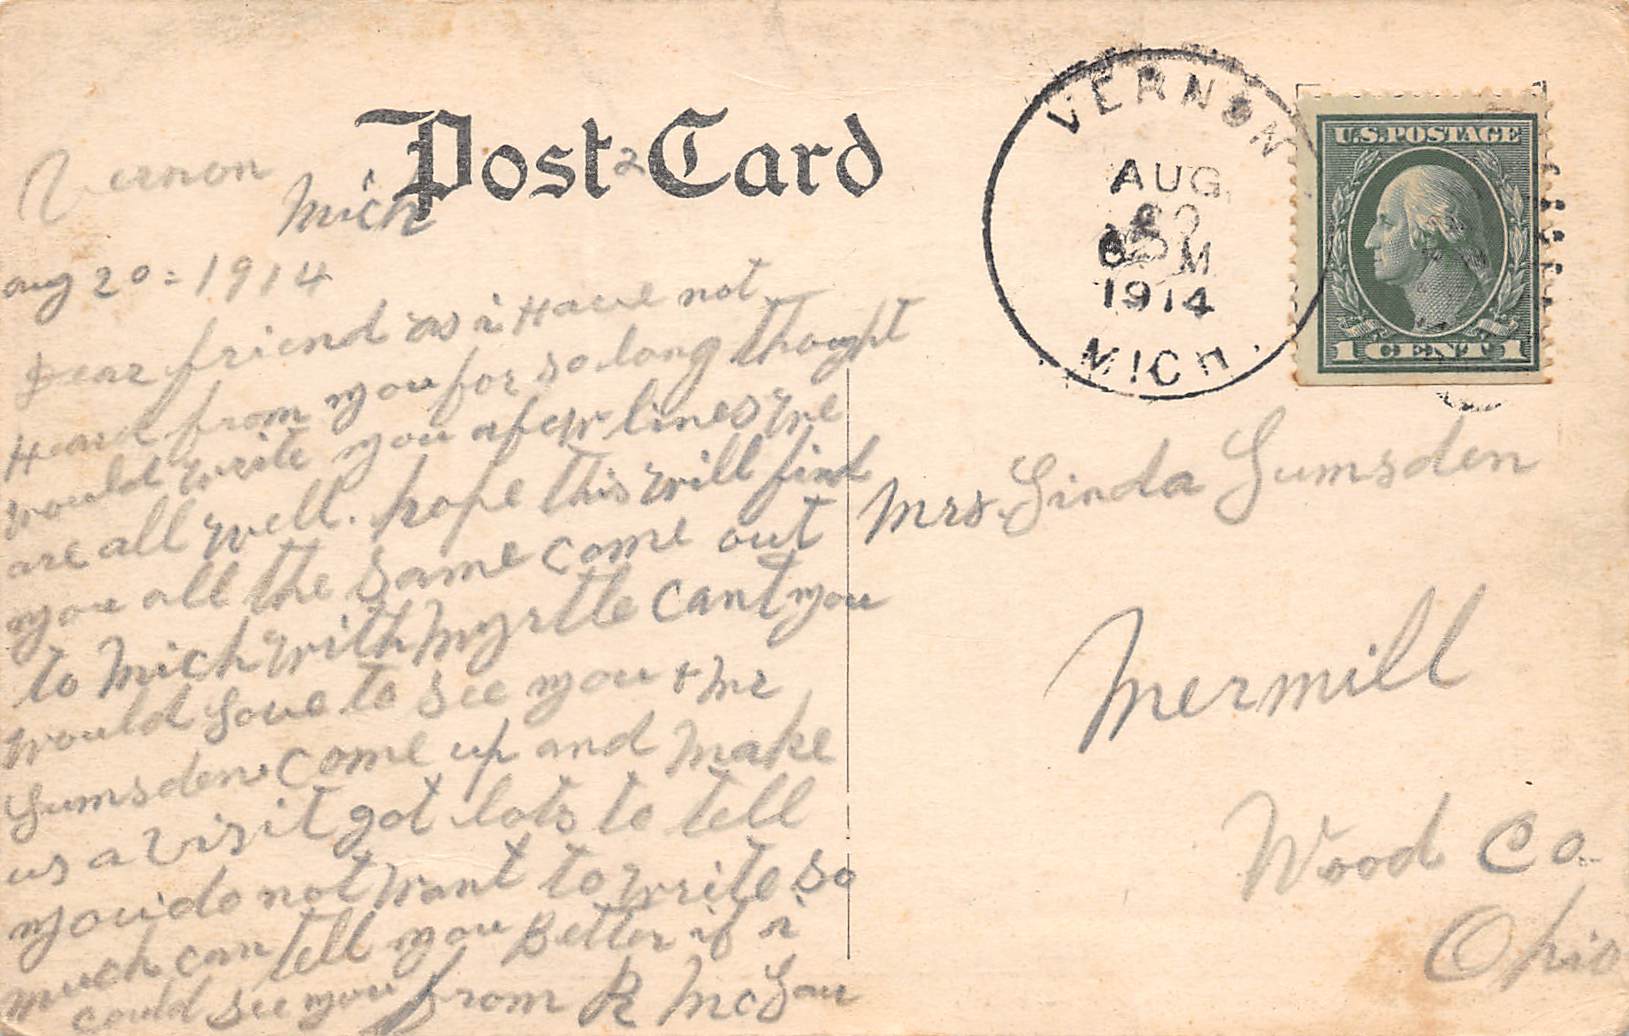 Post Card
Vernon
Mich
2
aug 20 = 1914
Dear friend as i Have not
Heard from you for so long thought
would write you a few lines we
are all well. hope this will find
you all the same come out
to Mich with Myrtle cant you
would Love to see you + Mr
Lumsden come up and make
us a visit got lots to tell
you do not want to write so
much can tell you Better if i
could see you from R
VERNON
AUG
M
1914
MICH.
U.S. POSTAGE
1 CENT 1
Mrs. Linda Lumsden
Mermill
Wood Co.
Ohio